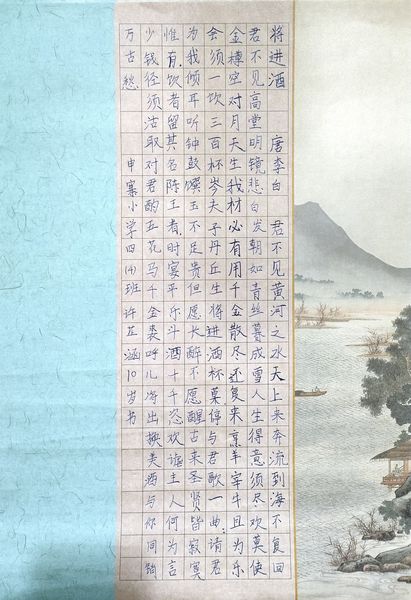 将进酒 唐李白 君不见黄河之水天上来奔流到海不复回
君不见高堂明镜悲白发朝如青丝暮成雪人生得意须尽欢莫使
金樽空对月天生我材必有用千金散尽还复来烹羊宰牛且为乐
会须一饮三百杯岑夫子丹丘生将进酒杯莫停与君歌一曲请君
为我倾耳听钟鼓馔玉不足贵但愿长醉不愿醒古来圣贤皆寂寞
惟有饮者留其名陈王昔时宴平乐斗酒十千恣欢谑主人何为言
少钱径须沽取对君酌五花马千金裘呼儿将出换美酒与你同销
万古愁 申寨小学四(4)班许芷涵10岁书